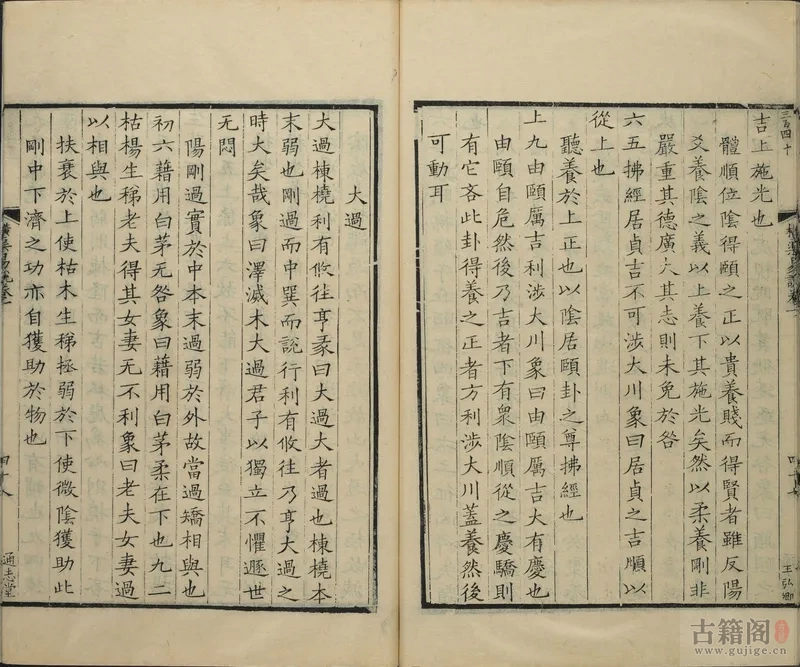 三百四十
吉上施光也
體順位陰得頤之正以貴養賤而得賢者雖反陽
爻養陰之義以上養下其施光矣然以柔養剛非
嚴重其德廣大其志則未免於咎
六五拂經居貞吉不可涉大川象曰居貞之吉順以
從上也
聽養於上正也以陰居頤卦之尊拂經也
上九由頤厲吉利涉大川象曰由頤厲吉大有慶也
由頤自危然後乃吉者下有衆陰順從之慶驕則
有它吝此卦得養之正者方利涉大川蓋養然後
可動耳
王弘卿
大過
大過棟橈利有攸往亨彖曰大過大者過也棟橈本
末弱也剛過而中巽而說行利有攸往乃亨大過之
時大矣哉象曰澤滅木大過君子以獨立不懼遯世
无悶
陽剛過實於中本末過弱於外故當過矯相與也
初六藉用白茅无咎象曰藉用白茅柔在下也九二
枯楊生稊老夫得其女妻无不利象曰老夫女妻過
以相與也
扶衰於上使枯木生稊拯弱於下使微陰獲助此
剛中下濟之功亦自獲助於物也
橫渠易說卷一
四十八
通志堂
古籍阁
www.gujige.cn